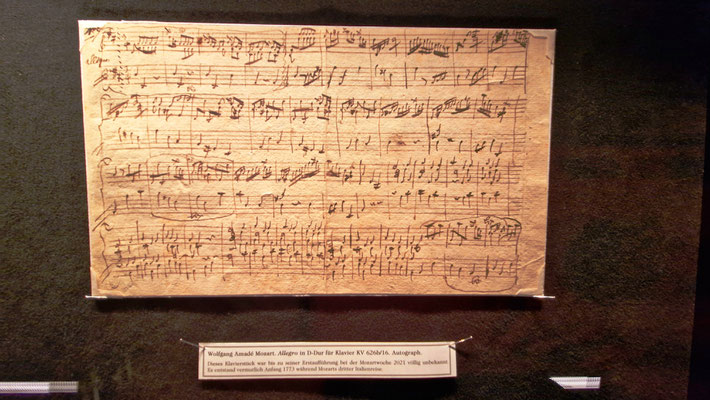 Wolfgang Amadé Mozart. Allegro in D-Dur für Klavier KV 626b/16. Autograph.
Dieses Klavierstück war bis zu seiner Erstaufführung bei der Mozartwoche 2021 völlig unbekannt.
Es entstand vermutlich Anfang 1773 während Mozarts dritter Italienreise.